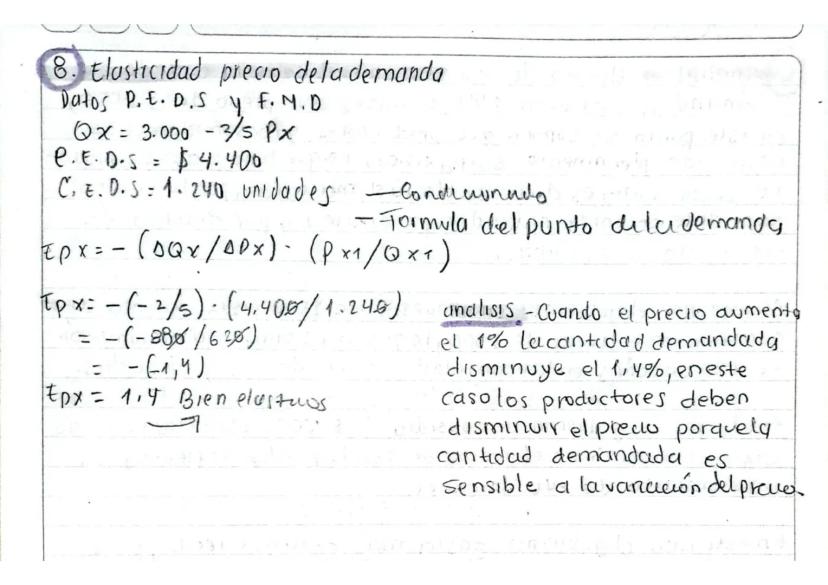 8. Elasticidad precio de la demanda
Datos P.E.D.S y F.M.D
QX = 3.000 - 2/5 PX
P.E.D.S = $ 4.400
C.E.D.S = 1.240 unidades — Condicionado
— Formula del punto de la demanda
EPX = - (ΔQX / ΔPX) · (PX1 / QX1)
EPX = - (-2/5) · (4.400 / 1.240)
= - (-880 / 620)
= - (-1,4)
EPX = 1,4 Bien elasticos
analisis - Cuando el precio aumenta
el 1% la cantidad demandada
disminuye el 1,4%, en este
caso los productores deben
disminuir el precio porque la
cantidad demandada es
sensible a la variación del precio.